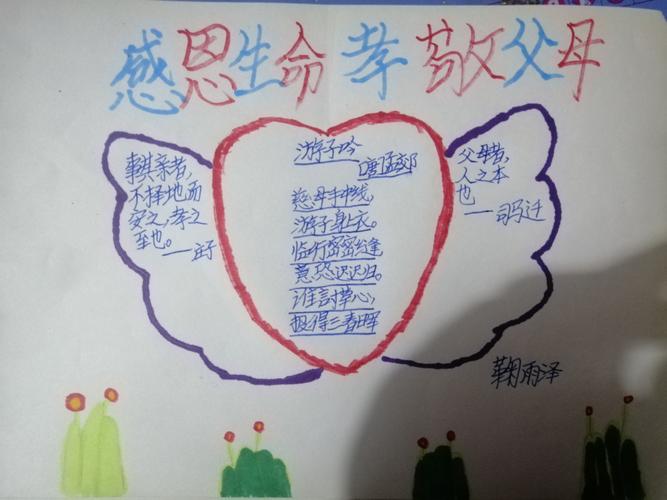 感恩生命 孝敬父母
事其亲者，
不择地而
安之，孝之
至也。
——庄子
游子吟
唐孟郊
慈母手中线，
游子身上衣。
临行密密缝
意恐迟迟归。
谁言寸草心，
报得三春晖
父母者，
人之本
也
——司马迁
鞠雨泽